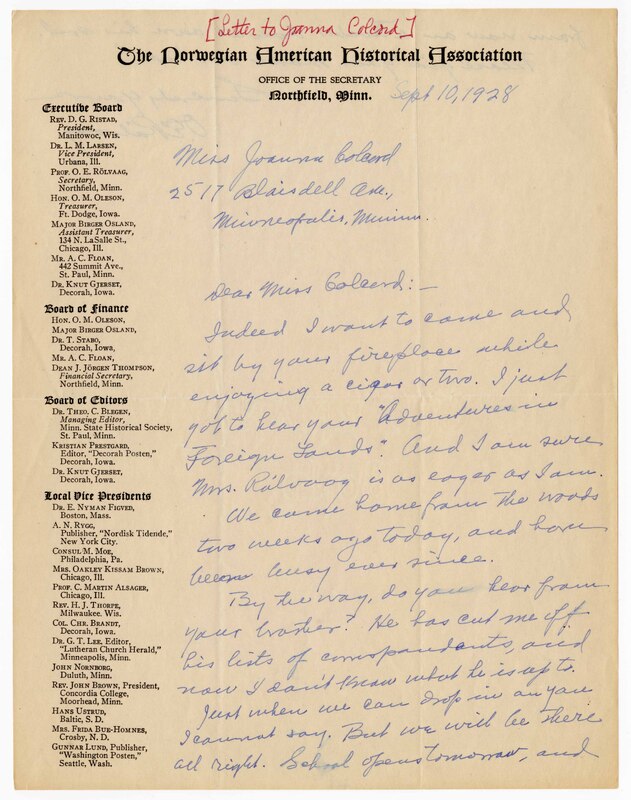 [Letter to Joanna Colcord]
The Norwegian American Historical Association
OFFICE OF THE SECRETARY
Northfield, Minn.
Sept 10, 1928
Executive Board
REV. D. G. RISTAD,
President,
Manitowoc, Wis.
DR. L. M. LARSEN,
Vice President,
Urbana, Ill.
PROF. O. E. RÖLVAAG,
Secretary,
Northfield, Minn.
HON. O. M. OLESON,
Treasurer,
Ft. Dodge, Iowa.
MAJOR BIRGER OSLAND,
Assistant Treasurer,
134 N. LaSalle St.,
Chicago, Ill.
MR. A. C. FLOAN,
442 Summit Ave.,
St. Paul, Minn.
DR. KNUT GJERSET,
Decorah, Iowa.
Board of Finance
HON. O. M. OLESON,
MAJOR BIRGER OSLAND,
DR. T. STABO,
Decorah, Iowa.
MR. A. C. FLOAN,
DEAN J. JÖRGEN THOMPSON,
Financial Secretary,
Northfield, Minn.
Board of Editors
DR. THEO. C. BLEGEN,
Managing Editor,
Minn. State Historical Society,
St. Paul, Minn.
KRISTIAN PRESTGARD,
Editor, "Decorah Posten,"
Decorah, Iowa.
DR. KNUT GJERSET,
Decorah, Iowa.
Local Vice Presidents
DR. E. NYMAN FIGVED,
Boston, Mass.
A. N. RYGG,
Publisher, "Nordisk Tidende,"
New York City.
CONSUL M. MOE,
Philadelphia, Pa.
MRS. OAKLEY KISSAM BROWN,
Chicago, Ill.
PROF. C. MARTIN ALSAGER,
Chicago, Ill.
REV. H. J. THORPE,
Milwaukee. Wis.
COL. CHR. BRANDT,
Decorah, Iowa.
DR. G. T. LEE, Editor,
"Lutheran Church Herald,"
Minneapolis, Minn.
JOHN NORBORG,
Duluth, Minn.
REV. JOHN BROWN, President,
Concordia College,
Moorhead, Minn.
HANS USTRUD,
Baltic, S. D.
MRS. FRIDA BUE-HOMNES,
Crosby, N. D.
GUNNAR LUND, Publisher,
"Washington Posten,"
Seattle, Wash.
Miss Joanna Colcord
2517 Blaisdell Ave.,
Minneapolis, Minn.
Dear Miss Colcord:—
Indeed I want to come and
sit by your fireplace while
enjoying a cigar or two. I just
got to hear your "Adventures in
Foreign Lands". And I am sure
Mrs. Rölvaag is as eager as I am.
We came home from the woods
two weeks ago today, and have
been busy ever since.
By the way, do you hear from
your brother? He has cut me off
his lists of correspondents, and
now I don't know what he is up to.
Just when we can drop in on you
I cannot say. But we will be there
all right. School opens tomorrow, and